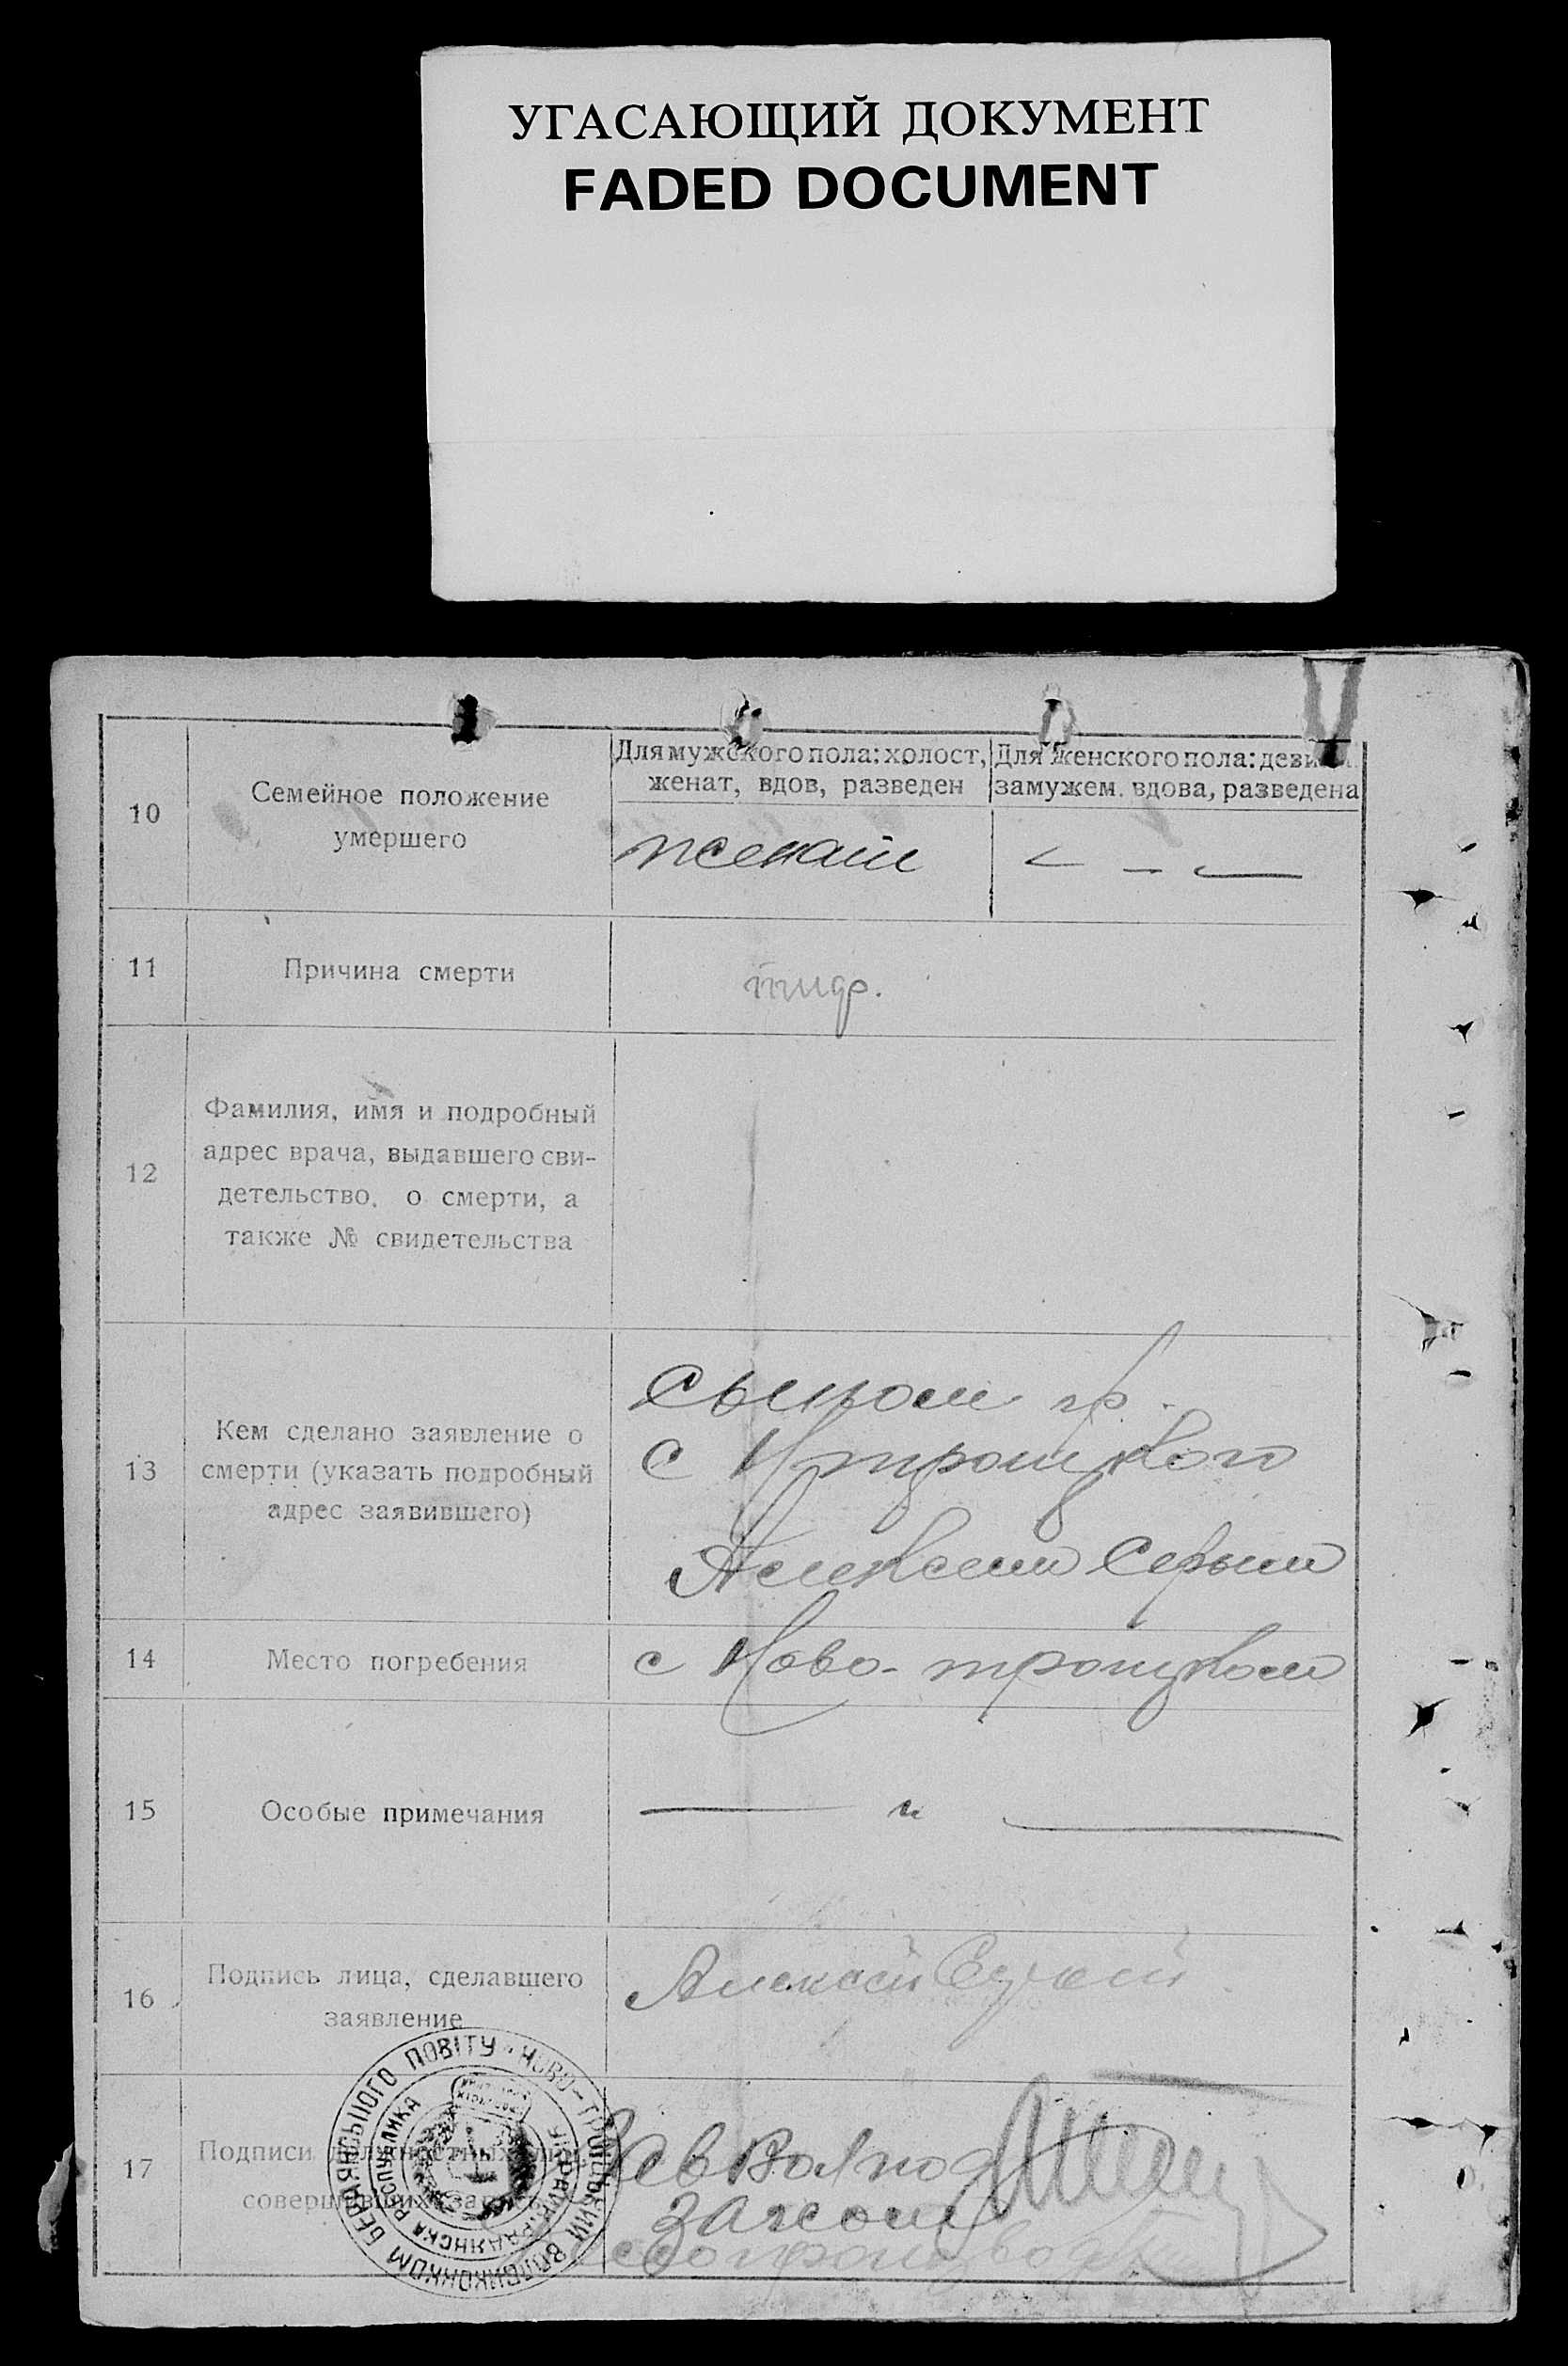 УГАСАЮЩИЙ ДОКУМЕНТ
FADED DOCUMENT
10
Семейное положение
умершего
Для мужского пола: холост,
женат, вдов, разведен
Для женского пола:
замужем. вдова, разведена
женат
11
Причина смерти
тиф.
12
Фамилия, имя и подробный
адрес врача, выдавшего сви-
детельство, о смерти, а
также № свидетельства
13
Кем сделано заявление о
смерти (указать подробный
адрес заявившего)
Сыном гр.
с Н троицкого
Алексеем
14
Место погребения
с Ново-троицком
15
Особые примечания
— " —
16
Подпись лица, сделавшего
заявление
Алексей
17
Подписи должностных лиц,
совершивших
Зав
Загсом
НОВО-ТРОЇЦЬКИЙ ВОЛВИКОНКОМ БЕРДЯНСЬКОГО ПОВІТУ
РАДЯНСЬКА РЕСПУБЛИКА